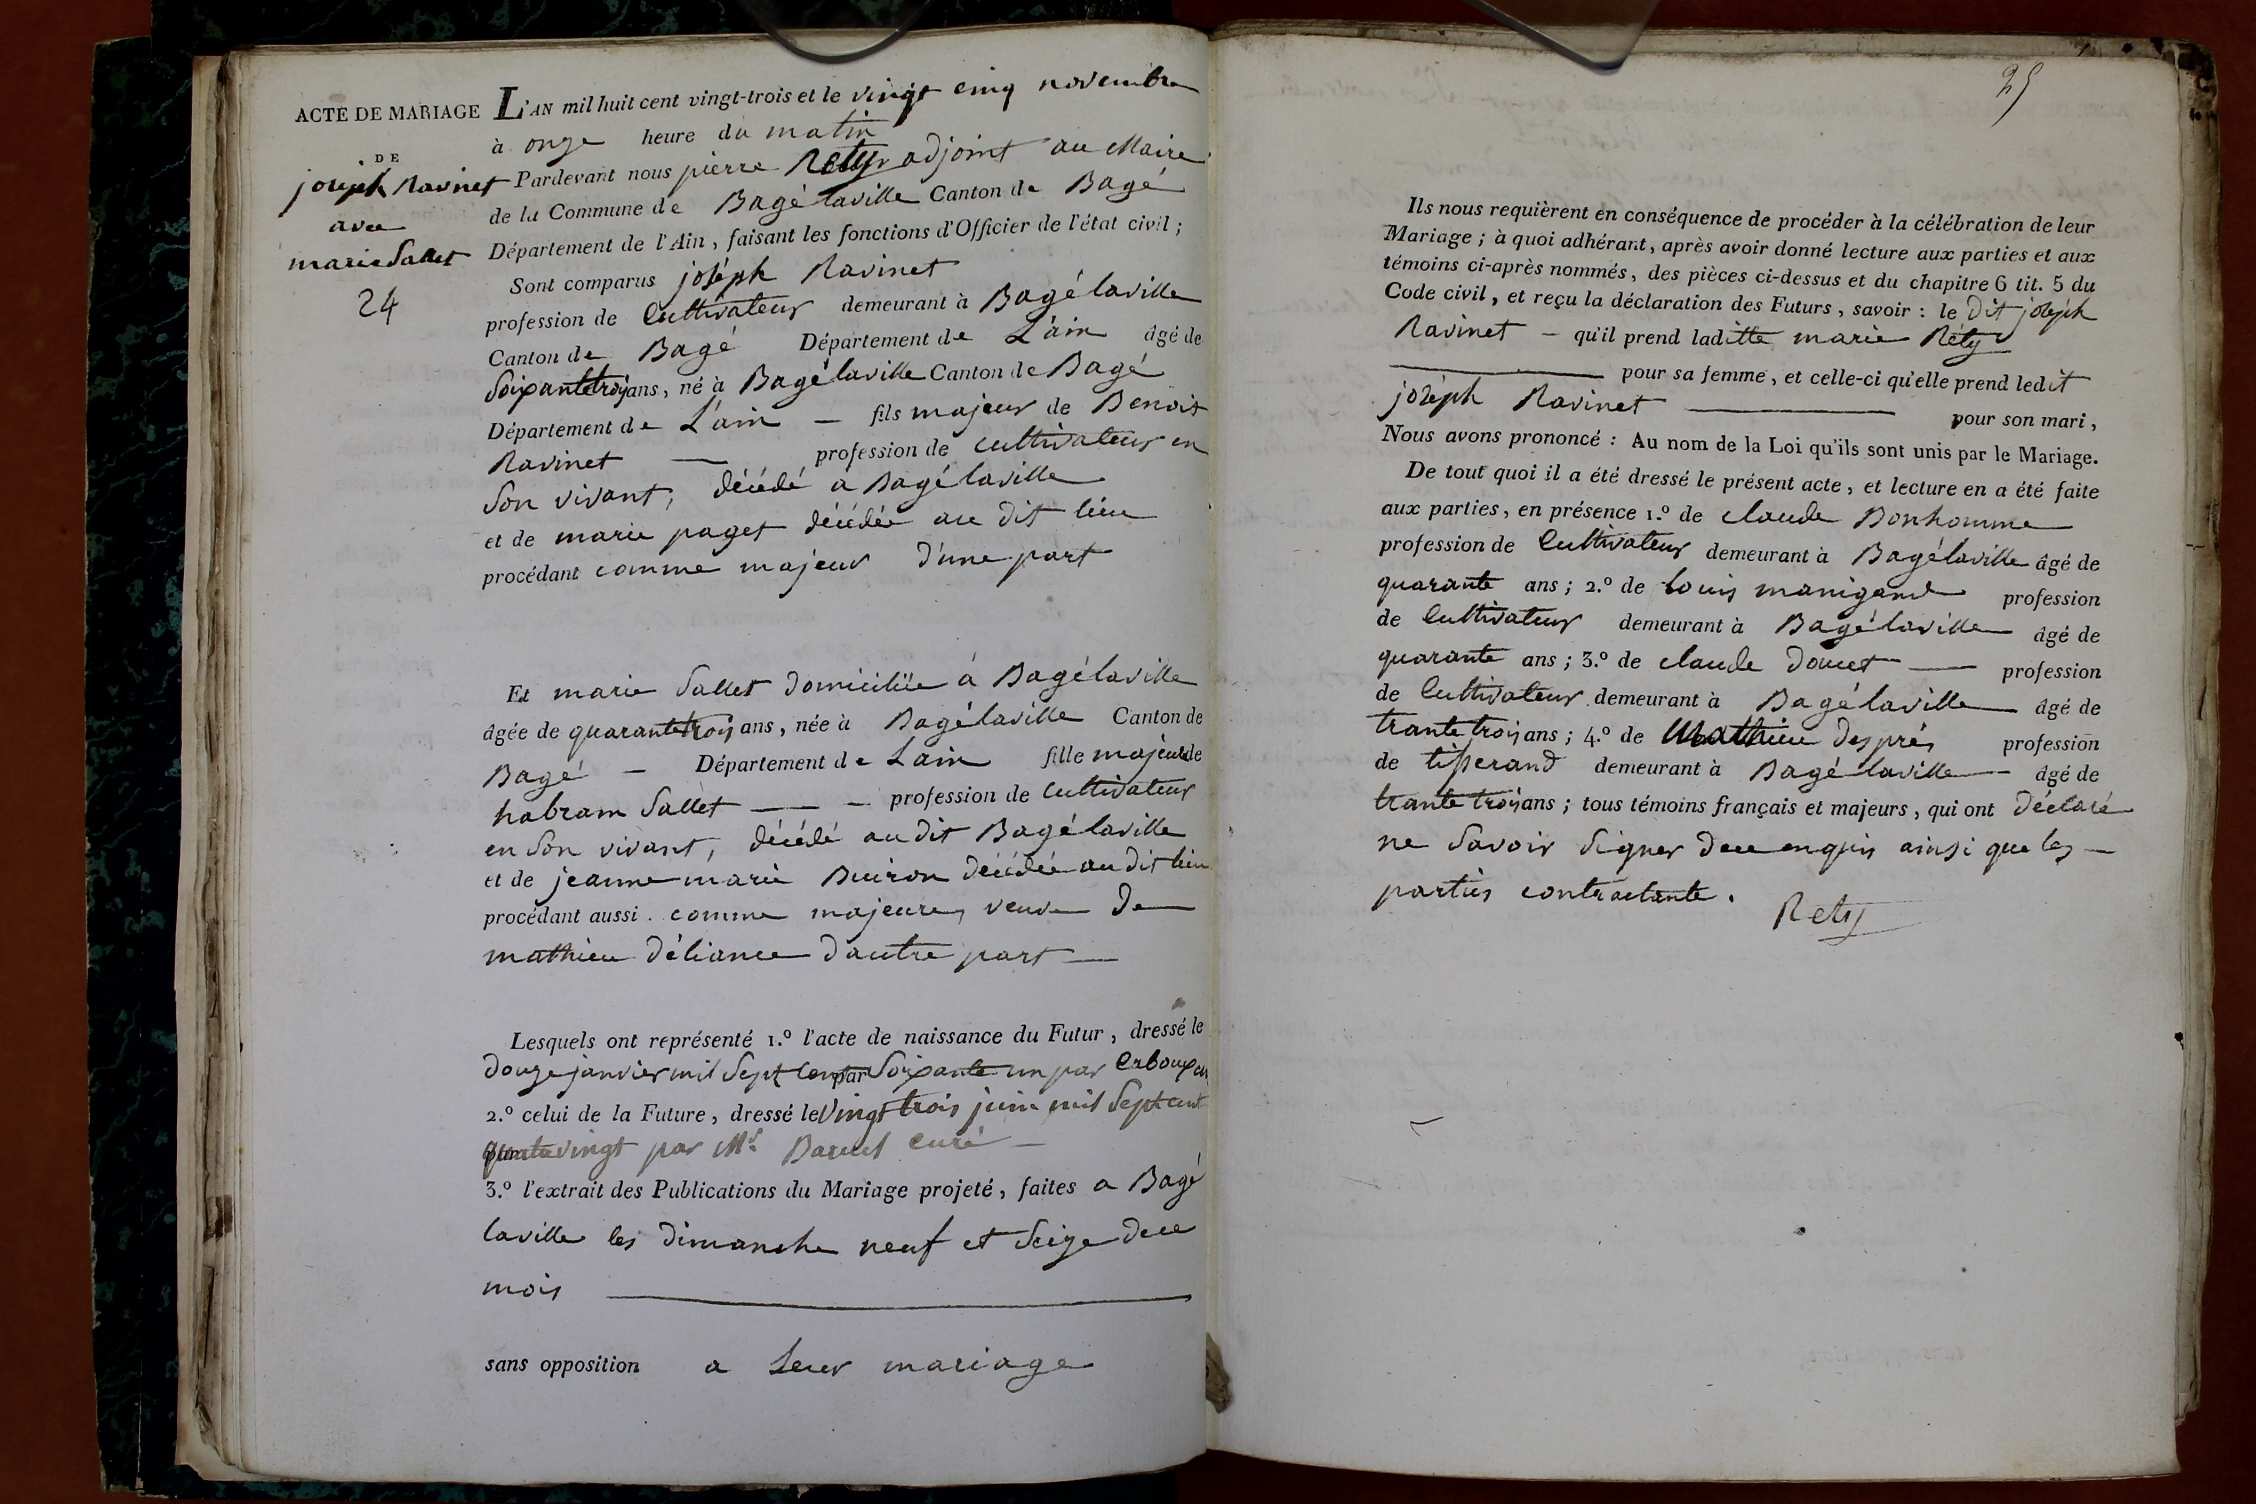 ACTE DE MARIAGE
DE
joseph Ravinet
avec
marie Sallet
24
L'AN mil huit cent vingt-trois et le vingt cinq novembre
à onze heure du matin
Pardevant nous pierre Rety adjoint au Maire
de la Commune de Bagé laville Canton de Bagé
Département de l'Ain, faisant les fonctions d'Officier de l'état civil;
Sont comparus joséph Ravinet
profession de Cultivateur demeurant à Bagé laville
Canton de Bagé Département de L'ain âgé de
Soixante trois ans, né à Bagé laville Canton de Bagé
Département de L'ain — fils majeur de Benoit
Ravinet — profession de cultivateur en
Son vivant, décédé a Bagé laville
et de marie paget décédée au dit lieu
procédant comme majeur d'une part
Et marie Sallet domiciliée à Bagé laville
âgée de quarante trois ans, née à Bagé laville Canton de
Bagé — Département de Lain fille majeure de
habram Sallet — — profession de Cultivateur
en Son vivant, décédé au dit Bagé laville
et de jeanne marie Buiron décédée au dit lieu
procédant aussi comme majeure, veuve De
mathieu Déliance D'autre part —
Lesquels ont représenté 1.º l'acte de naissance du Futur, dressé le
Douze janvier mil Sept Cent par Soixante un par
2.º celui de la Future, dressé le Vingt trois juin mil Sept cent
quatre vingt par Mr. Baruel Curé —
3.º l'extrait des Publications du Mariage projeté, faites a Bagé
laville les Dimanche neuf et Seize dece
mois
sans opposition a Leur mariage
25
Ils nous requièrent en conséquence de procéder à la célébration de leur
Mariage; à quoi adhérant, après avoir donné lecture aux parties et aux
témoins ci-après nommés, des pièces ci-dessus et du chapitre 6 tit. 5 du
Code civil, et reçu la déclaration des Futurs, savoir: le Dit joséph
Ravinet — qu'il prend laditte marie Réty
— pour sa femme, et celle-ci qu'elle prend ledit
joséph Ravinet — pour son mari,
Nous avons prononcé: Au nom de la Loi qu'ils sont unis par le Mariage.
De tout quoi il a été dressé le présent acte, et lecture en a été faite
aux parties, en présence 1.º de claude Bonhomme
profession de Cultivateur demeurant à Bagé laville âgé de
quarante ans; 2.º de Louis manigand profession
de Cultivateur demeurant à Bagé laville âgé de
quarante ans; 3.º de claude Doucet — profession
de Cultivateur demeurant à Bagé laville — âgé de
trante trois ans; 4.º de Mathieu Després profession
de tisserand demeurant à Bagé laville — âgé de
trante trois ans; tous témoins français et majeurs, qui ont Déclaré
ne Savoir Signer dece enquis ainsi que les —
parties contractante.
Rety